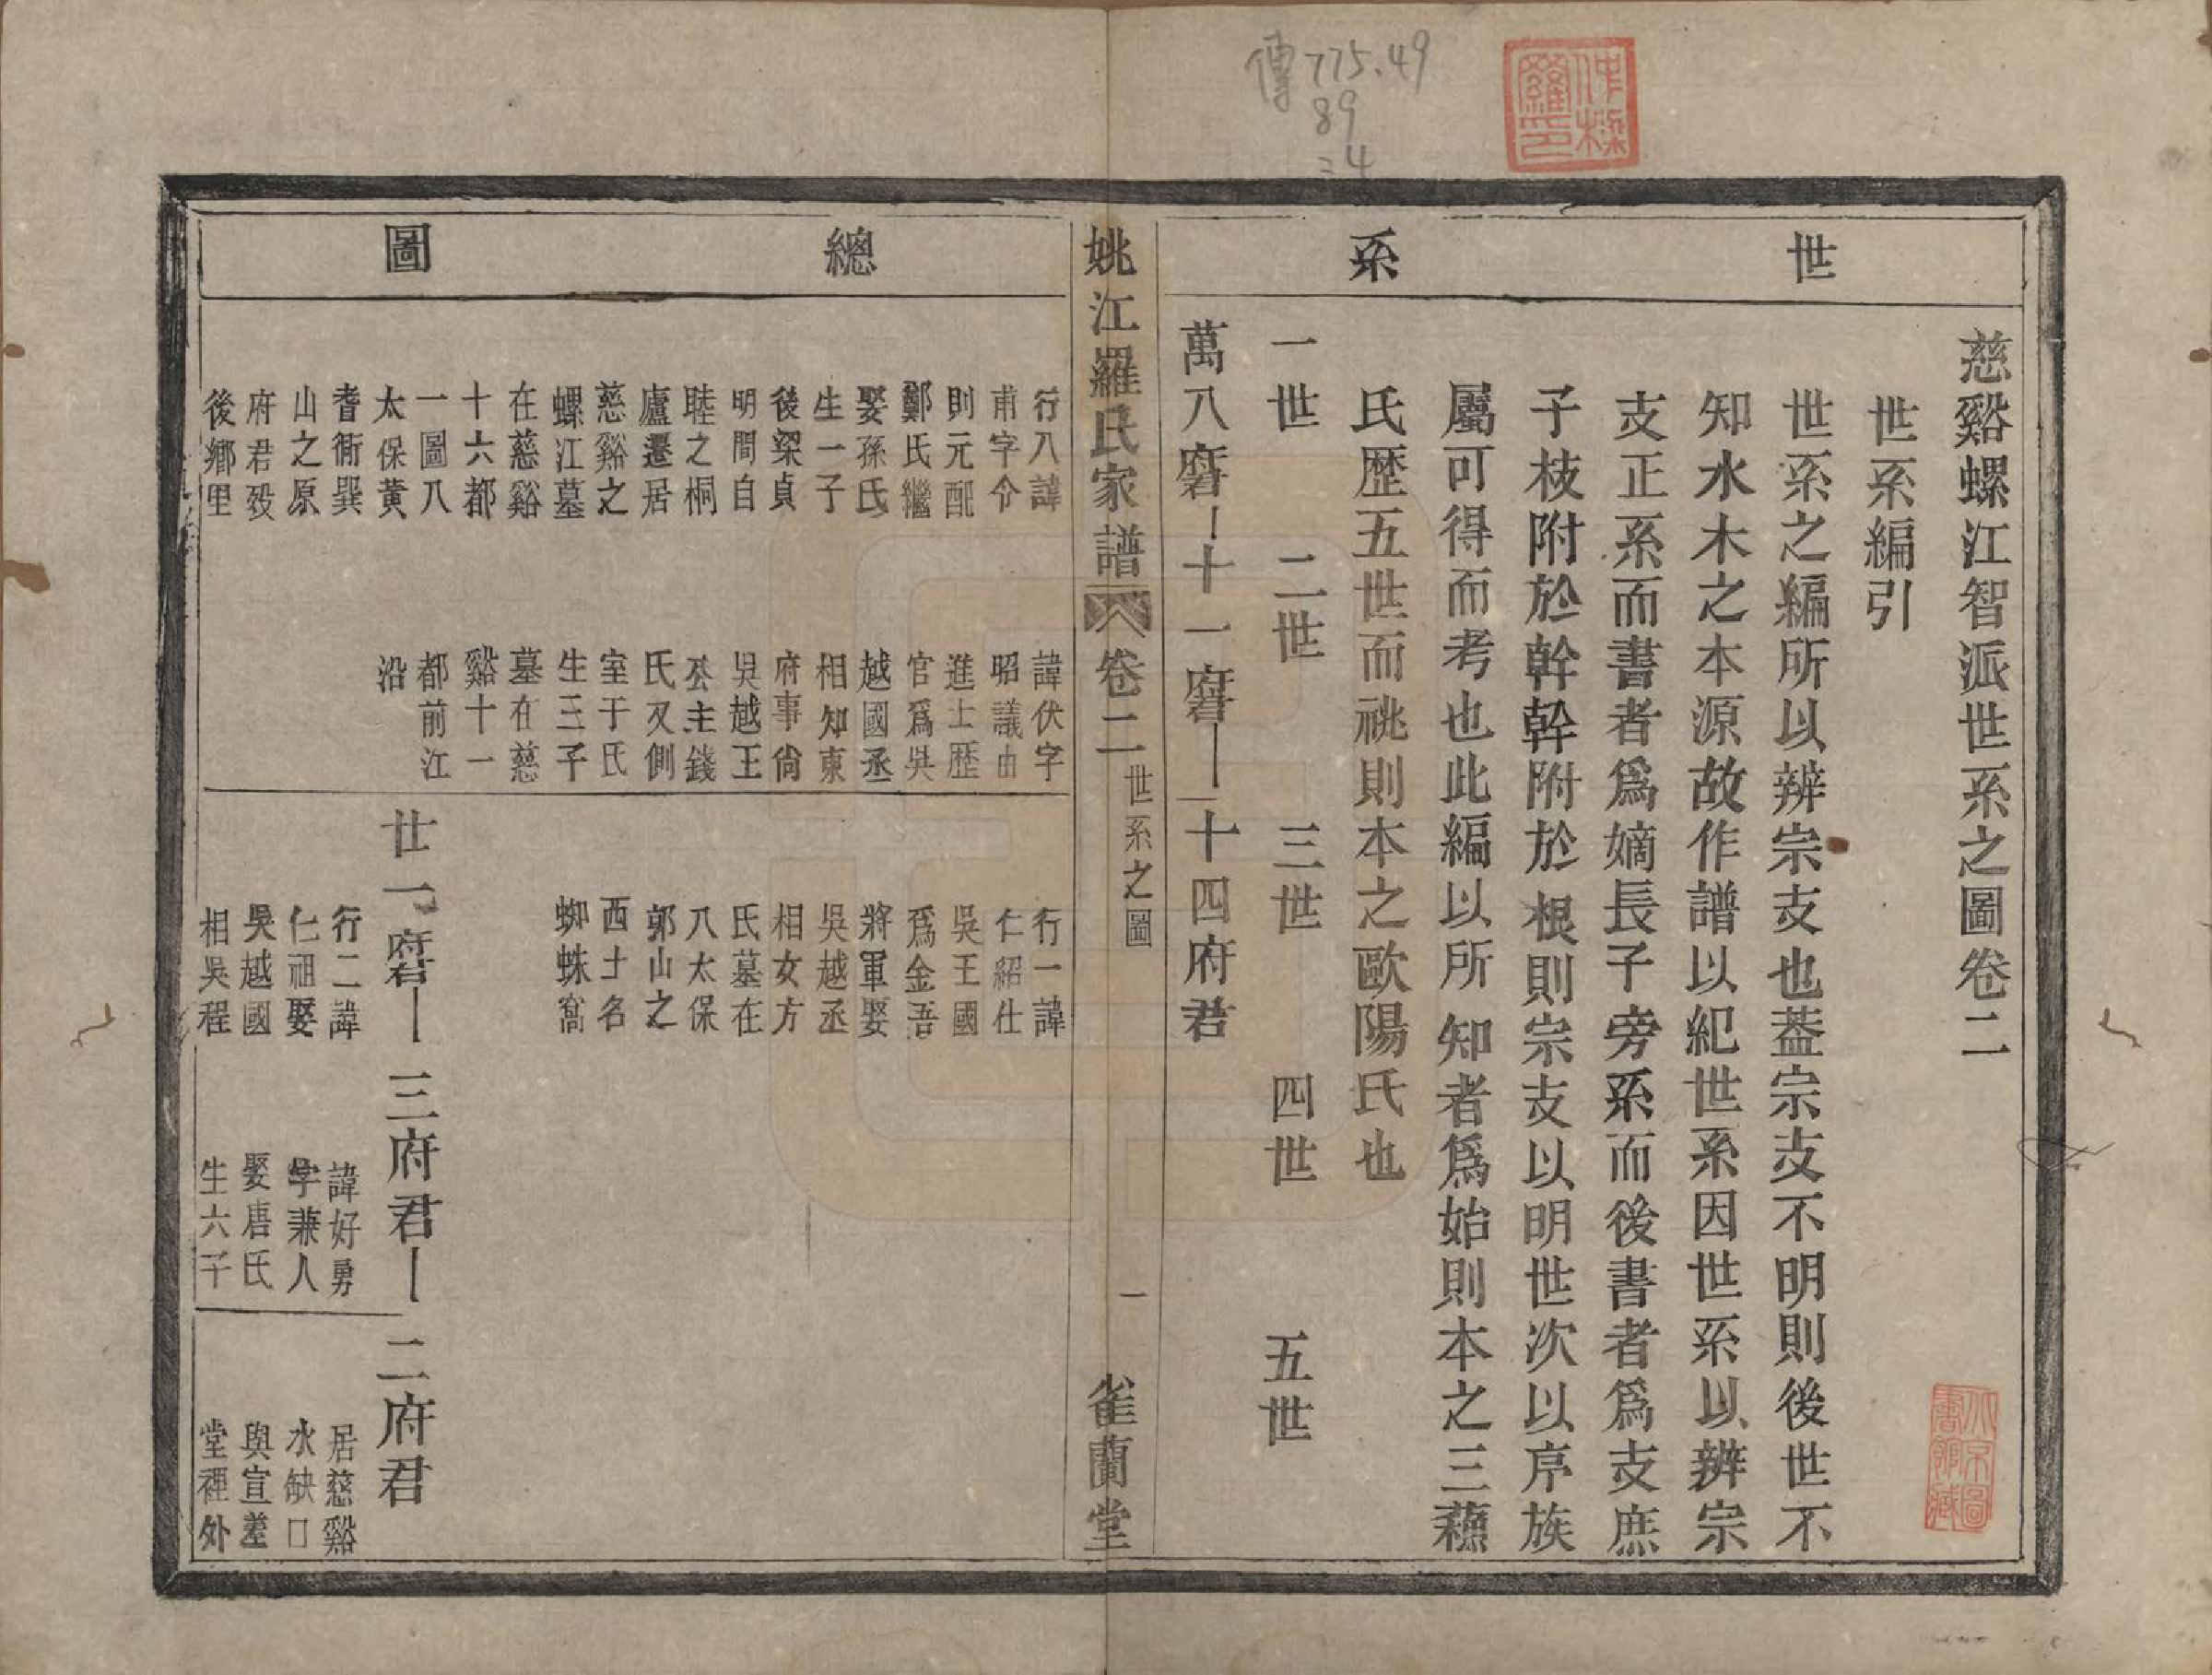 傳775.49
89
:4
仲樑
羅印
世系
慈谿螺江智派世系之圖卷二
世系編引
世系之編所以辨宗支也葢宗支不明則後世不
知水木之本源故作譜以紀世系因世系以辨宗
支正系而書者爲嫡長子旁系而後書者爲支庶
子枝附於幹幹附於根則宗支以明世次以序族
屬可得而考也此編以所知者爲始則本之三蘓
氏歷五世而祧則本之歐陽氏也
一世 二世 三世 四世 五世
萬八府君 十一府君 二十四府君
姚江羅氏家譜 卷二 世系之圖 一 雀蘭堂
總圖
行八諱
甫字令
則元配
鄭氏繼
娶孫氏
生一子
後梁貞
明間自
睦之桐
廬遷居
慈谿之
螺江墓
在慈谿
十六都
一圖八
太保黃
耆衕巽
山之原
府君歿
後鄉里
諱伏字
昭議由
進士歷
官爲吳
越國丞
相知東
府事尙
吳越王
公主錢
氏又側
室于氏
生三子
墓在慈
谿十一
都前江
沿
行一諱
仁紹仕
吳王國
爲金吾
將軍娶
吳越丞
相女方
氏墓在
八太保
郭山之
西土名
蜘蛛窩
廿一府君 三府君 二府君
行二諱
仁祖娶
吳越國
相吳程
諱好勇
字兼人
娶唐氏
生六子
居慈谿
水缺口
與宣差
堂裡外